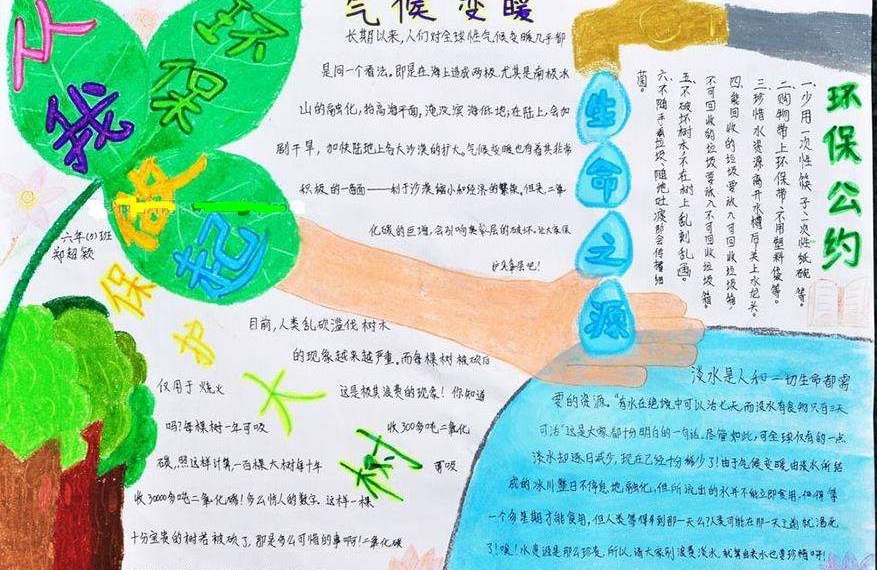 环保
从我
做起
六年(1)班
郑超颖
气候变暖
长期以来,人们对全球性气候变暖几乎都
是同一个看法。即是在海上造成两极,尤其是南极冰
山的融化,抬高海平面,淹没滨海低地;在陆上,会加
剧干旱,加快陆地上各大沙漠的扩大。气候变暖也有着其非常
积极的一面——利于沙漠缩小和经济的繁荣。但是二氧
化碳的巨增,会引响臭氧层的破坏。让大家保
护臭氧层吧!
生命之源
环保公约
一、少用一次性筷子、一次性纸碗等。
二、购物带上环保带、不用塑料袋等。
三、珍惜水资源离开水槽后关上水龙头。
四、能回收的垃圾要放入可回收垃圾箱,
不可回收的垃圾要放入不可回收垃圾箱。
五、不破坏树木,不在树上乱刻乱画。
六、不随手乱扔垃圾、随地吐痰那会传播细
菌。
保护大树
目前,人类乱砍滥伐树木
的现象越来越严重。而每棵树被砍后
仅用于烧火
这是极其浪费的现象!你知道
吗?每棵树一年可吸
收300多吨二氧化
碳,照这样计算,一百棵大树每十年
可吸
收30000多吨二氧化碳!多么惊人的数字。这样一棵
十分宝贵的树若被砍了,那是多么可惜的事啊!二氧化碳
淡水是人和一切生命都需
要的资源。"有水在绝境中可以活七天,而没水有食物只有三天
可活"这是大家都十分明白的一句话。尽管如此,可全球仅有的一点
淡水却逐日减少,现在已经十分稀少了!由于气候变暖,由淡水所结
成的冰川整日不停息地融化,但所流出的水并不能立即食用,但得等
一个多星期才能食用,但人类等得来到那一天么?人类可能在那一天之前就渴死
了!哦!水资源是那么珍贵,所以,请大家别浪费淡水,就算自来水也要珍惜呀!